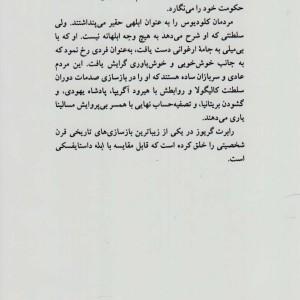 حکومت خود را می‌نگارد.
مردمان کلودیوس را به عنوان ابلهی حقیر می‌پنداشتند. ولی
سلطنتی که او شرح می‌دهد به هیچ وجه ابلهانه نیست. او که با
بی‌میلی به جامهٔ ارغوانی دست یافت، به‌عنوان فردی رخ نمود که
به جانب خوش‌خویی و خوش‌باوری گرایش یافت. این مردم
عادی و سربازان ساده هستند که او را در بازسازی صدمات دوران
سلطنت کالیگولا و روابطش با هیرود آگریپا، پادشاه یهودی، و
گشودن بریتانیا، و تصفیه‌حساب نهایی با همسر بی‌پروایش مسالینا
یاری می‌دهند.
رابرت گریوز در یکی از زیباترین بازسازی‌های تاریخی قرن
شخصیتی را خلق کرده است که قابل مقایسه با ابله داستایفسکی
است.